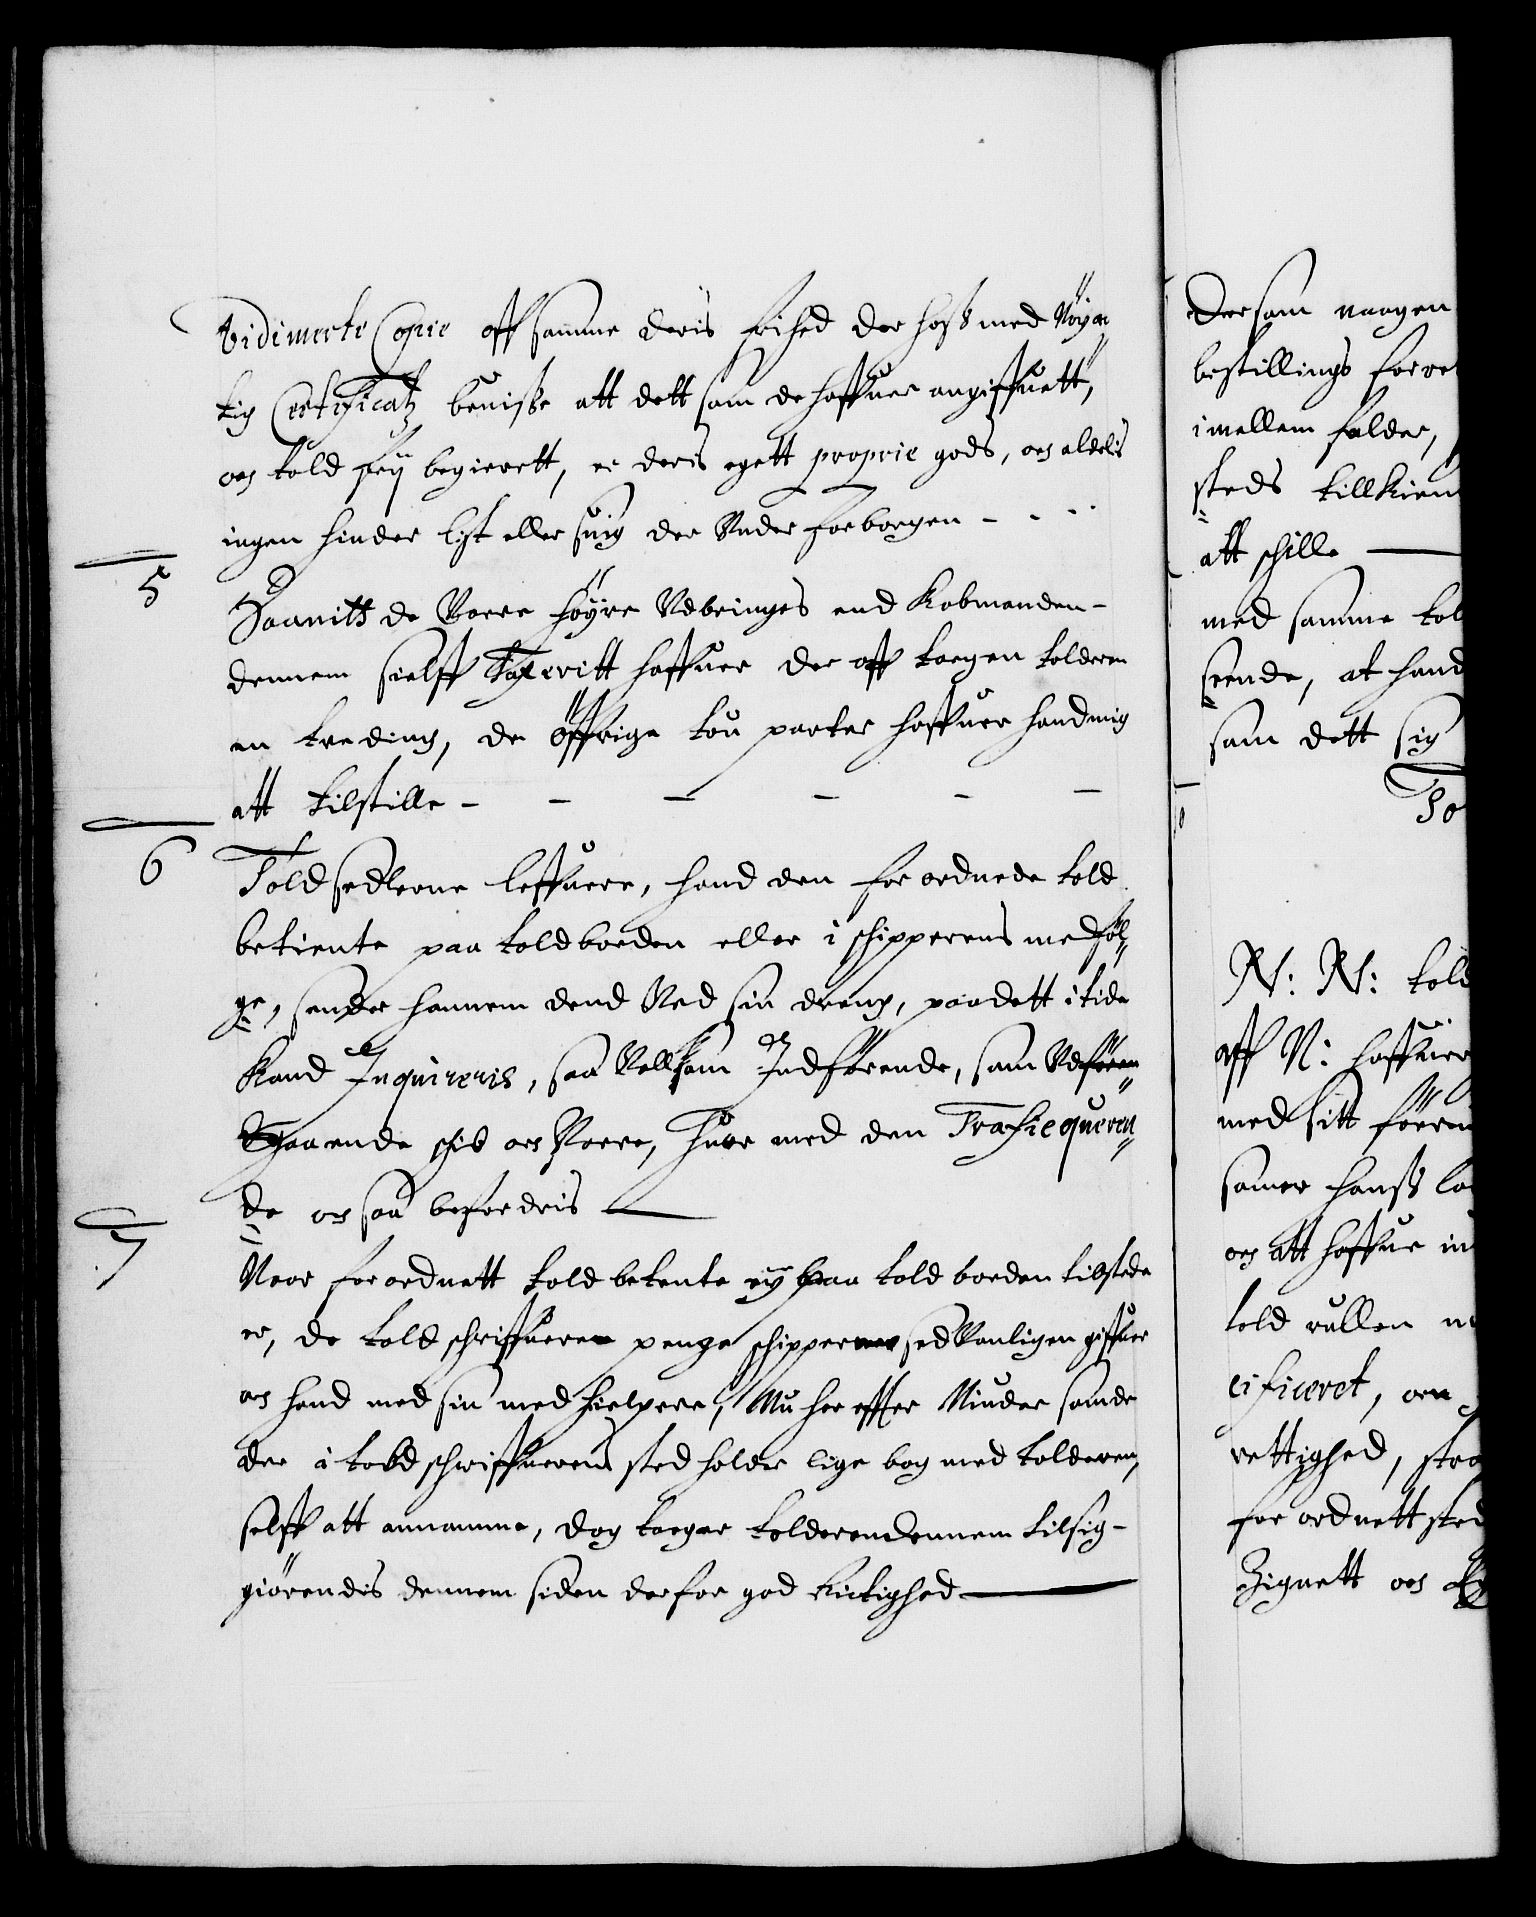 Vidimerte Copie aff samme deris frihed der hoß med Nöyac„
tig Certificatz beuisße att dett som de haffuer angiffuett,
oc told frij begierett, er deris egett proprie gods, oc aldelis
ingen hinder list eller suig der Under forborgen - - - -
5
Saauitt de Vaare höyre Udbringes end Kobmanden-
dennem sielff Taxeritt haffuer der aff tager tolderen
en treding, de öffrige tou parter haffuer hand mig
att tilstille - - - - - -
6
Toldsedlerne leffuere, hand den for ordnede told
betiente paa toldboeden eller i schipperens med föl„
ge, sender hannem dend Ved sin dreng, paa dett i tide
Kand Inquireris, saa Vell som Indförende, som Udfören„
Gaaende schib oc Vaare, huor med den Trafiequeren„
de oc saa befordris
7
Naar for ordnett told betente eij paa told boeden tilstede
er, de told schriffueren penge schipperne sedVanligen giffuer
oc hand med sin med hielpere, Mu her effter Minder som de
der i told schriffuerens sted holder lige bog med tolderen,
selff att annamme, dog tager tolderen dennem til sig-
giörendis dennem siden derfor god Rictighed
dersom naagen
bestillings forre
imellem falder,
steds tillKien
att schille
med samme tol
seende, at hand
som dett sig
To
N: N: told
aff N: haffuer
med sitt föern
samer hanß la
oc att haffue in
told rullen
cificeret, oc
rettighed, stra
for ordnett sted
Zignett oc